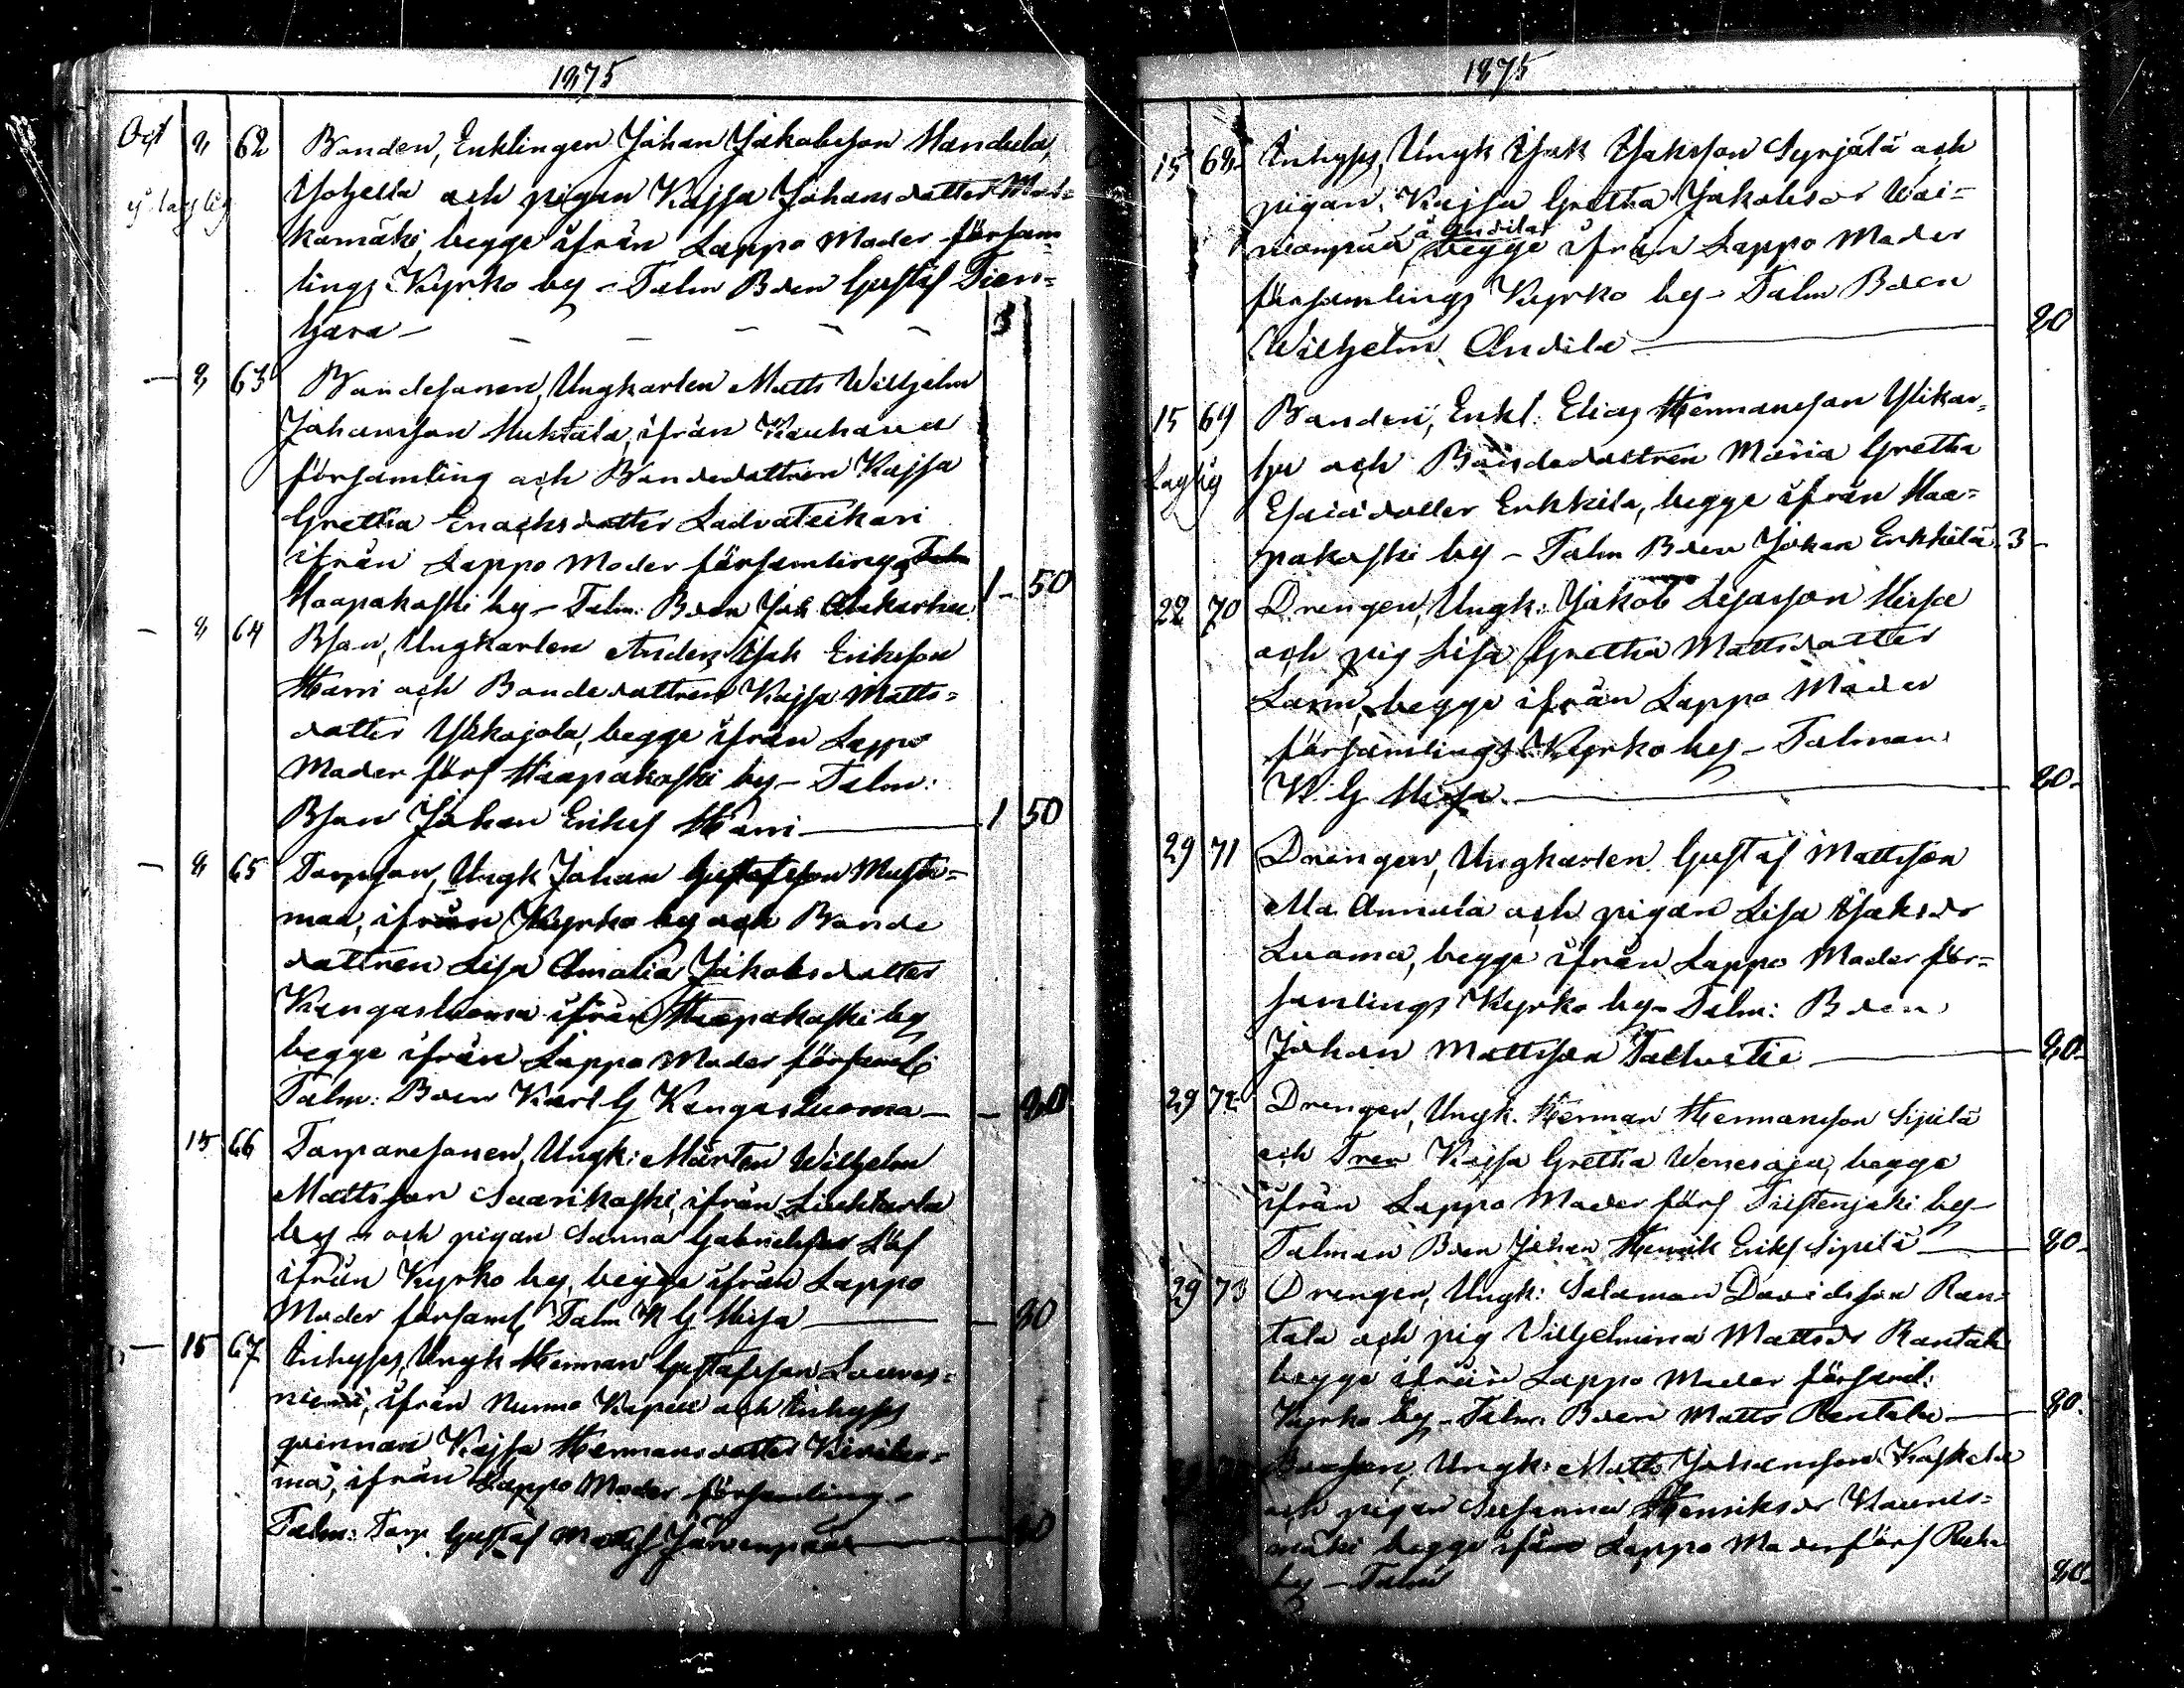 1875
Oct 8 62 Bonden, Enklingen Johan Jakobsson Mandula,
ej laglig Isotella och pigan Kajsa Johansdotter Mal-
kamäki, begge ifrån Lappo Moder försam
lings Kyrko by – Talm Bden Gustaf Tien-
haara – 3
– 8 63 Bondesonen, Ungkarlen Matts Wilhelm
Johansson Huhtala, ifrån Kauhava
församling och Bondedottren Kajsa
Gretha Enochsdotter Ladvateikari
ifrån Lappo Moder församlings
Haapakoski by – Talm: Bden Joh. Alakarhu 1 – 50
– 8 64 Bson, Ungkarlen Anders Isak Eriksson
Harri och Bondedottren Kajsa Matts-
dotter Ylikojola, begge ifrån Lappo
Moder förs Haapakoski by – Talm:
Bson Johan Eriks Harri 1 50
– 8 65 Torpson, Ungk Johan Gustafsson Musta-
maa, ifrån Kyrko by och Bonde
dottren Lisa Amalia Jakobsdotter
Kangasluoma ifrån Haapakoski by
begge ifrån Lappo Moder församl:
Talm: Bden Karl G Kangasluoma – – 80
15 66 Torparesonen, Ungk: Mårten Wilhelm
Mattsson Saarikoski, ifrån Liuhtarla
by – och pigan Sanna Gabrielsdr Löf
ifrån Kyrko by, begge ifrån Lappo
Moder församl Talm K G Hirsa – 80
– 15 67 Inhyses, Ungk Herman Gustafsson Louves-
niemi, ifrån Nurmo Kapell och Inhyses
qvinnan Kajsa Hermansdotter Kiviluo-
ma, ifrån Lappo Moder församling –
Talm: Torp Gustaf Matts Järvenpää 80
1875
15 68 Inhyses, Ungk Isak Isaksson Syrjälä och
pigan, Kajsa Gretha Jakobsdr Wai-
nionpää, å Andila, begge ifrån Lappo Moder
församlings Kyrko by – Talm Bden
Wilhelm Andila 80
15 69 Bonden, Enkl. Elias Hermansson Ylikar-
Laglig hu och Bondedottren Maria Gretha
Esaiædotter Erkkila, begge ifrån Haa-
pakoski by – Talm Bden Johan Erkkilä 3 –
22 70 Drengen, Ungk: Jakob Isaksson Hirsa
och pig Lisa Gretha Mattsdotter
Larm, begge ifrån Lappo Moder
församlings Kyrko by – Talman
K. G. Hirsa. 80 –
29 71 Drengen, Ungkarlen Gustaf Mattsson
Ala Annala och pigan Lisa Isaksdr
Luoma, begge ifrån Lappo Moder för-
samlings Kyrko by – Talm: Bden
Johan Mattsson Talvitie 80 –
29 72 Drengen, Ungk. Herman Hermansson Sipilä
och Kajsa Gretha Wenesoja, begge
ifrån Lappo Moder förs Tiistenjoki by –
Talman Bden Johan Henrik Eriks Sipilä 80 –
29 73 Drengen, Ungk: Salomon Davidsson Ran-
tala och pig Vilhelmina Mattsdr Rantala
begge ifrån Lappo Moder församl.
Kyrko by – Talm. Bden Matts Rantala 80.
Bdeson, Ungk: Matts Johansson Kaskela
och pigan Susanna Henriksdr Haunes-
mäki begge ifrån Lappo Moder förs Ruha
by – Talm 80 –